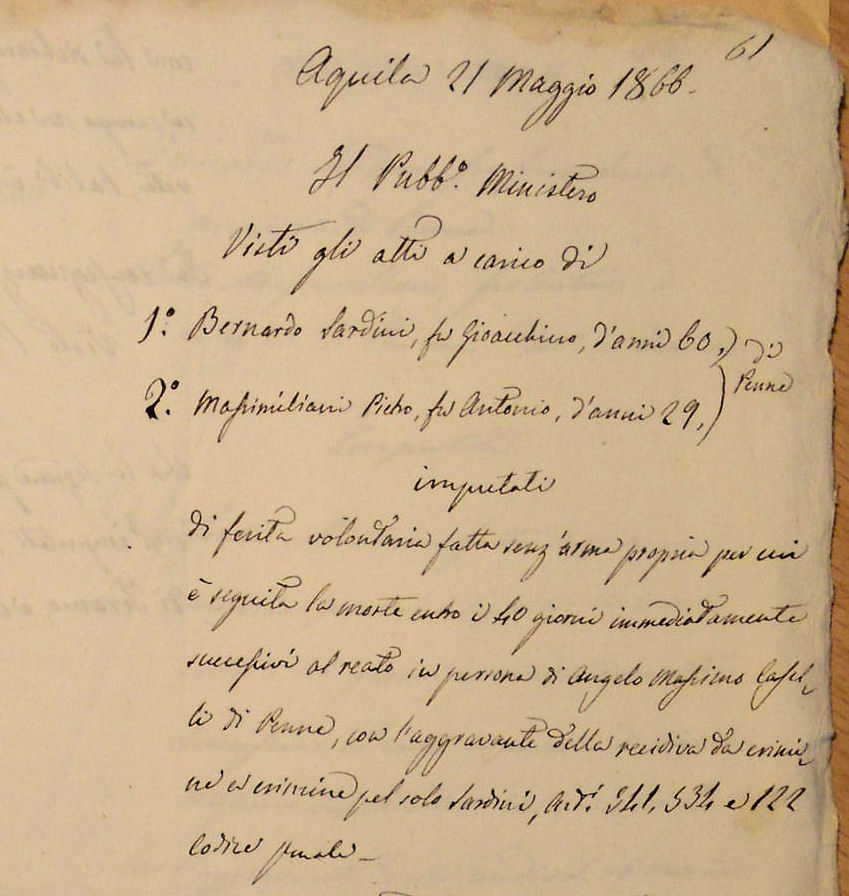 61
Aquila 21 Maggio 1866.
Il Pubb.° Ministero
Visti gli atti a carico di
1.° Bernardo Sardini, fu Gioacchino, d'anni 60, ) di
2.° Massimiliani Pietro, fu Antonio, d'anni 29, ) Penne
imputati
di ferita volontaria fatta senz'arma propria per cui
è seguita la morte entro i 40 giorni immediatamente
successivi al reato in persona di Angelo Massimo
di Penne, con l'aggravante della recidiva da crimi-
ne a crimine pel solo Sardini, Art.i 541, 534 e 122
Codice penale_